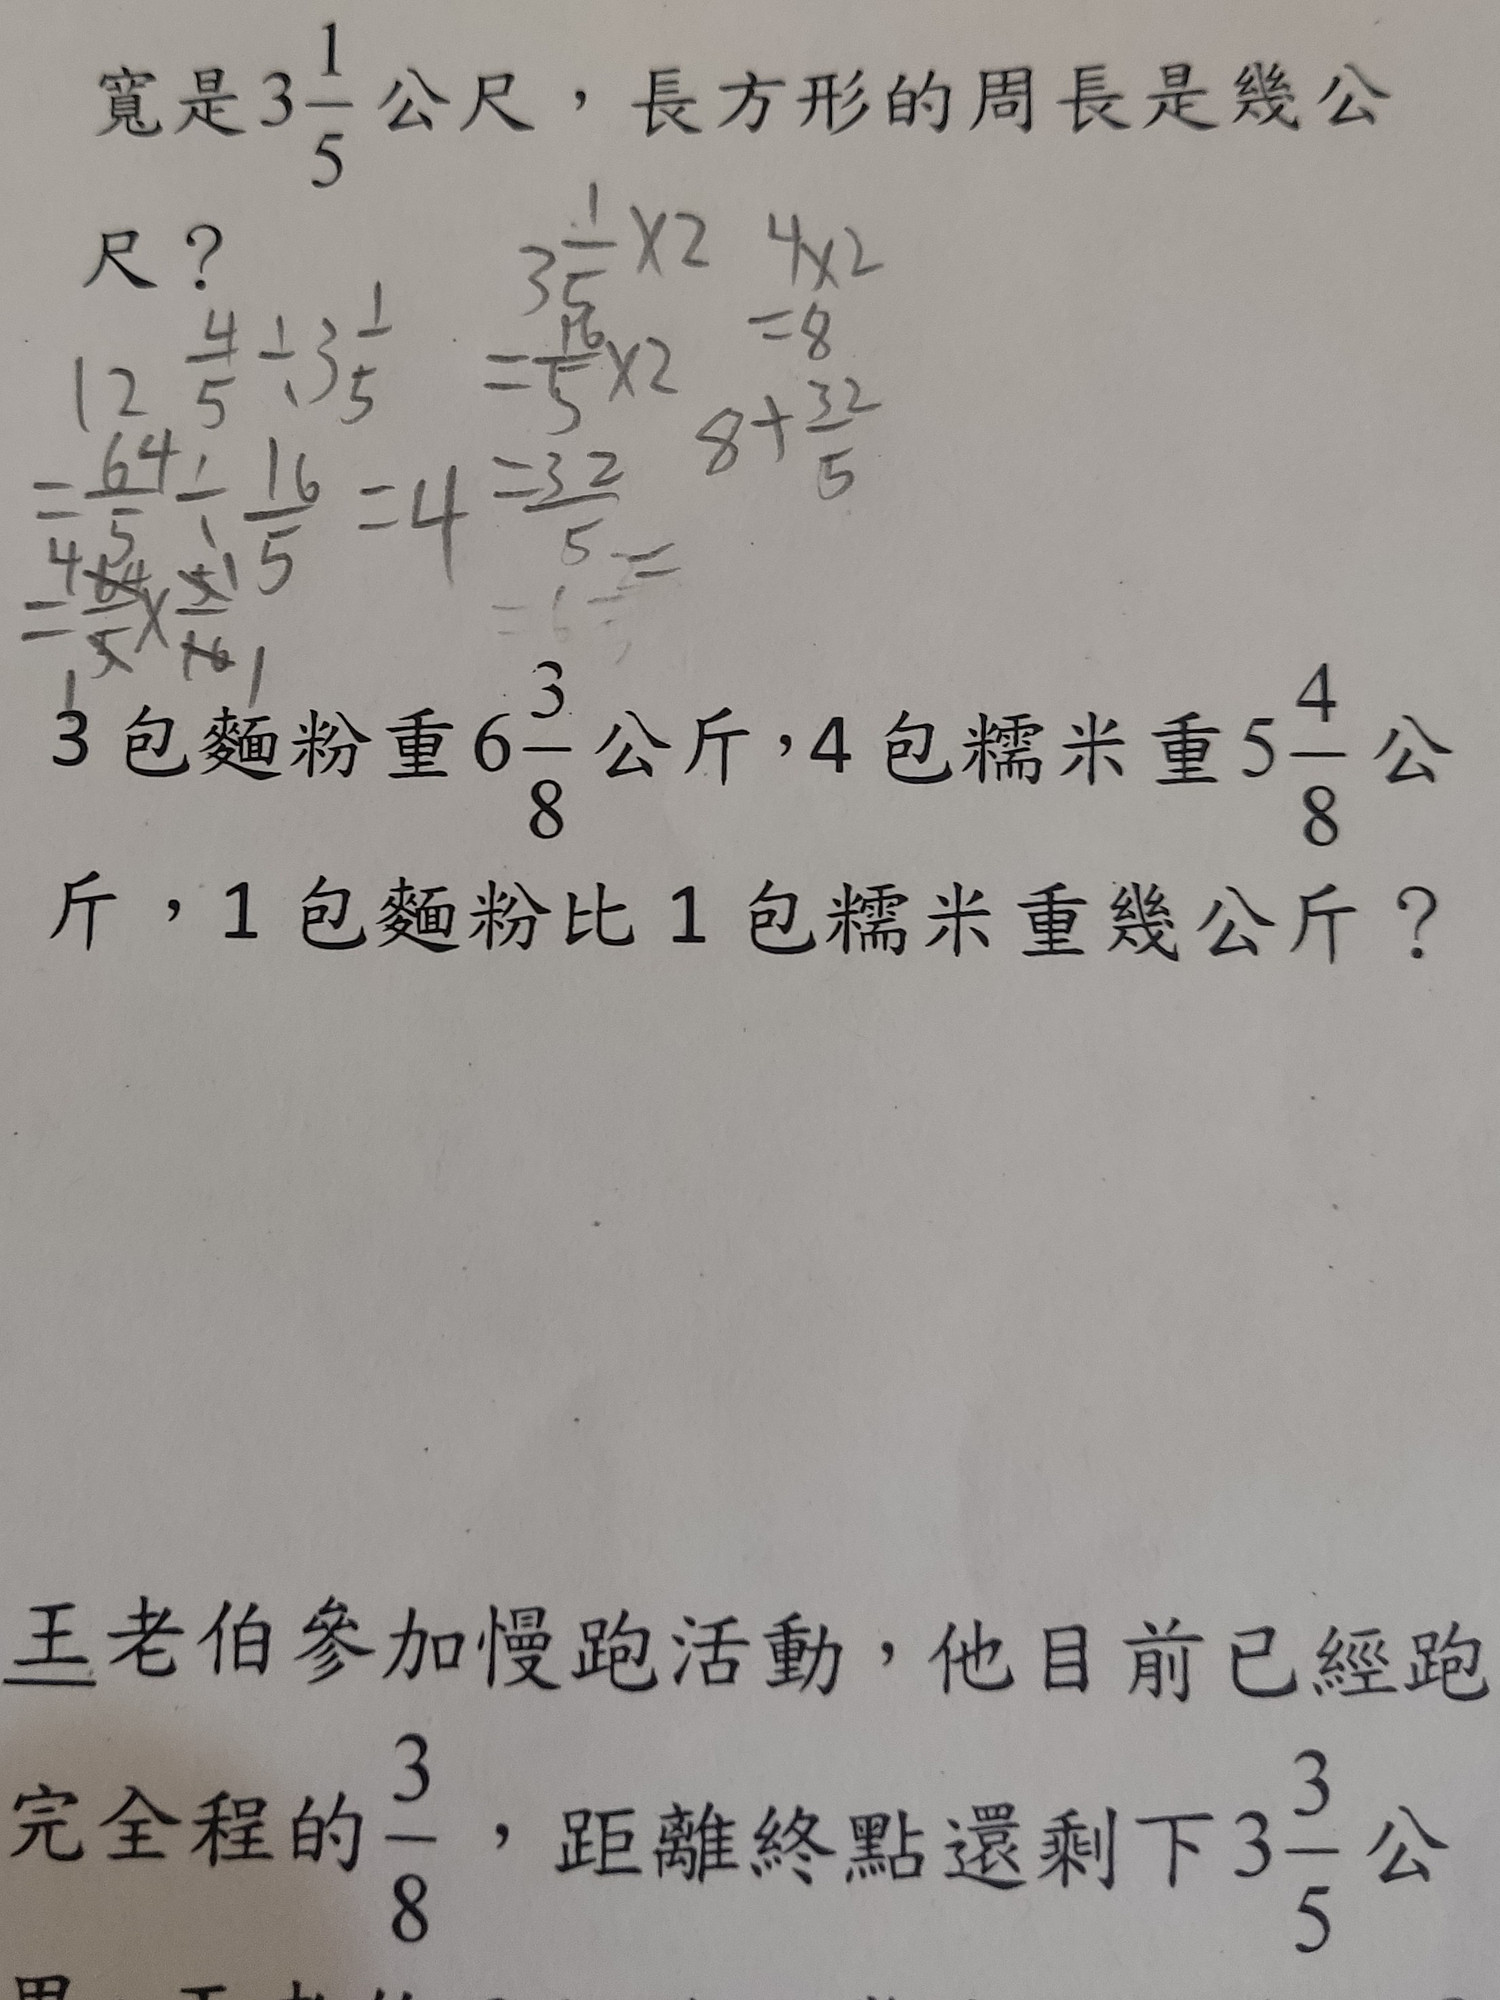 寬是3 1/5 公尺，長方形的周長是幾公
尺？
12 4/5 ÷ 3 1/5
= 64/5 ÷ 16/5 = 4
= 64/5 × 5/16
4 1
1 1
3 1/5 × 2
= 16/5 × 2
= 32/5 =
4×2
=8
8 + 32/5
3 包麵粉重6 3/8 公斤，4 包糯米重5 4/8 公
斤，1 包麵粉比 1 包糯米重幾公斤？
王老伯參加慢跑活動，他目前已經跑
完全程的 3/8，距離終點還剩下3 3/5 公